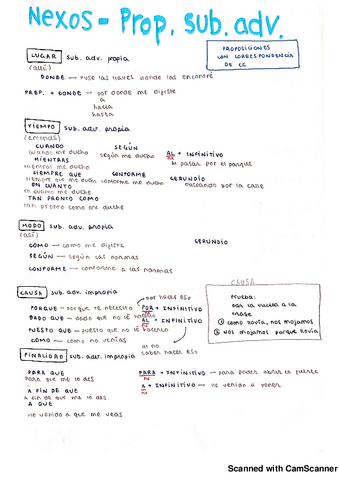 Nexos - Prop. sub. adv.
PROPOSICIONES
CON CORRESPONDENCIA
DE CC
LUGAR sub. adv. propia
(allí)
DONDE → puse las llaves donde las encontré
PREP. + DONDE → por donde me dijiste
a
hacia
hasta
TIEMPO sub. adv. propia
(entonces)
CUANDO
cuando me ducho
MIENTRAS
mientras me ducho
SIEMPRE QUE
siempre que me ducho
EN CUANTO
en cuanto me duche
TAN PRONTO COMO
tan pronto como me duche
SEGÚN
según me ducho
CONFORME
conforme me ducho
AL + INFINITIVO
al pasar por el parque
GERUNDIO
paseando por la calle
MODO sub. adv. propia
(así)
COMO → como me dijiste
GERUNDIO
SEGÚN → según las normas
CONFORME → conforme a las normas
CAUSA sub. adv. impropia
PORQUE → porque te necesito
DADO QUE → dado que no sé hacerlo
PUESTO QUE → puesto que no sé hacerlo
COMO → como no venías
por hacer eso
POR + INFINITIVO
AL + INFINITIVO
al no
saber hacer eso
CAUSA
Prueba:
dar la vuelta a la
frase
① como llovía, nos mojamos
② nos mojamos porque llovía
FINALIDAD sub. adv. impropia
PARA QUE
para que me lo des
A FIN DE QUE
a fin de que me lo des
A QUE
he venido a que me veas
PARA + INFINITIVO → para poder abrir la puerta
A + INFINITIVO → he venido a poner
Scanned with CamScanner